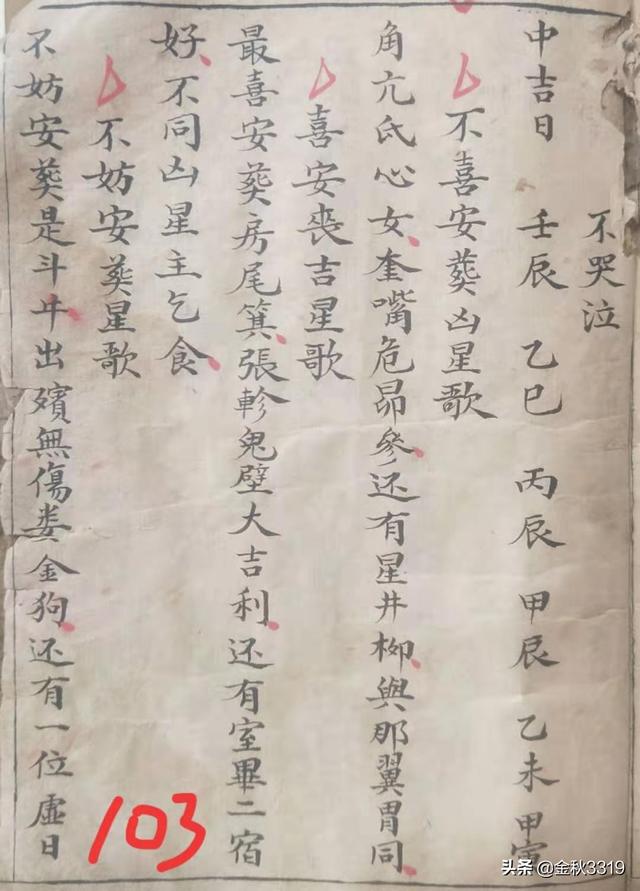 不哭泣
中吉日 壬辰 乙巳 丙辰 甲辰 乙未 甲寅
不喜安葬凶星歌
角亢氐心女奎嘴危昴參还有星井柳與那翼胃同
喜安喪吉星歌
最喜安葬房尾箕張軫鬼壁大吉利还有室畢二宿
好不同凶星主乞食
不妨安葬星歌
不妨安葬是斗牛出殯無傷娄金狗还有一位虛日
103
头条 @金秋3319